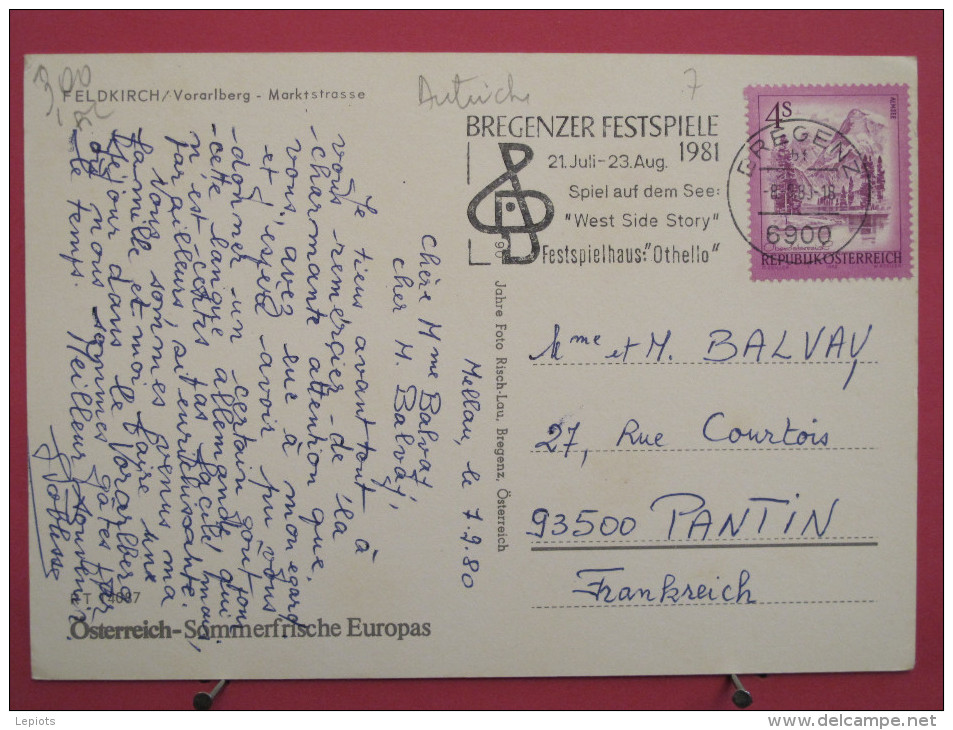 3,00
FELDKIRCH/Vorarlberg - Marktstrasse
Autriche
7
BREGENZER FESTSPIELE
1981
21. Juli-23. Aug.
Spiel auf dem See:
"West Side Story"
Festspielhaus: "Othello"
BREGENZ
6900
4S
ALMSEE
Oberösterreich
REPUBLIK ÖSTERREICH
Mellau, le 7.9.80
Chère Mme Balvay,
cher M. Balvay,
Je tiens avant tout à
vous remercier de la
charmante attention que
vous avez eue à mon égard
et j'espère avoir pu vous
donner un certain goût pour
cette langue allemande qui
n'est certes pas facile, mais,
par ailleurs, si enrichissante.
Nous sommes venus ma
famille et moi faire un
séjour dans le Vorarlberg
où nous sommes gâtés par
le temps. Meilleur souvenir
90 Jahre Foto Risch-Lau, Bregenz, Österreich
Mme et M. BALVAY
27, Rue Courtois
93500 PANTIN
Frankreich
Österreich-Sommerfrische Europas
Lepiots
www.delcampe.net